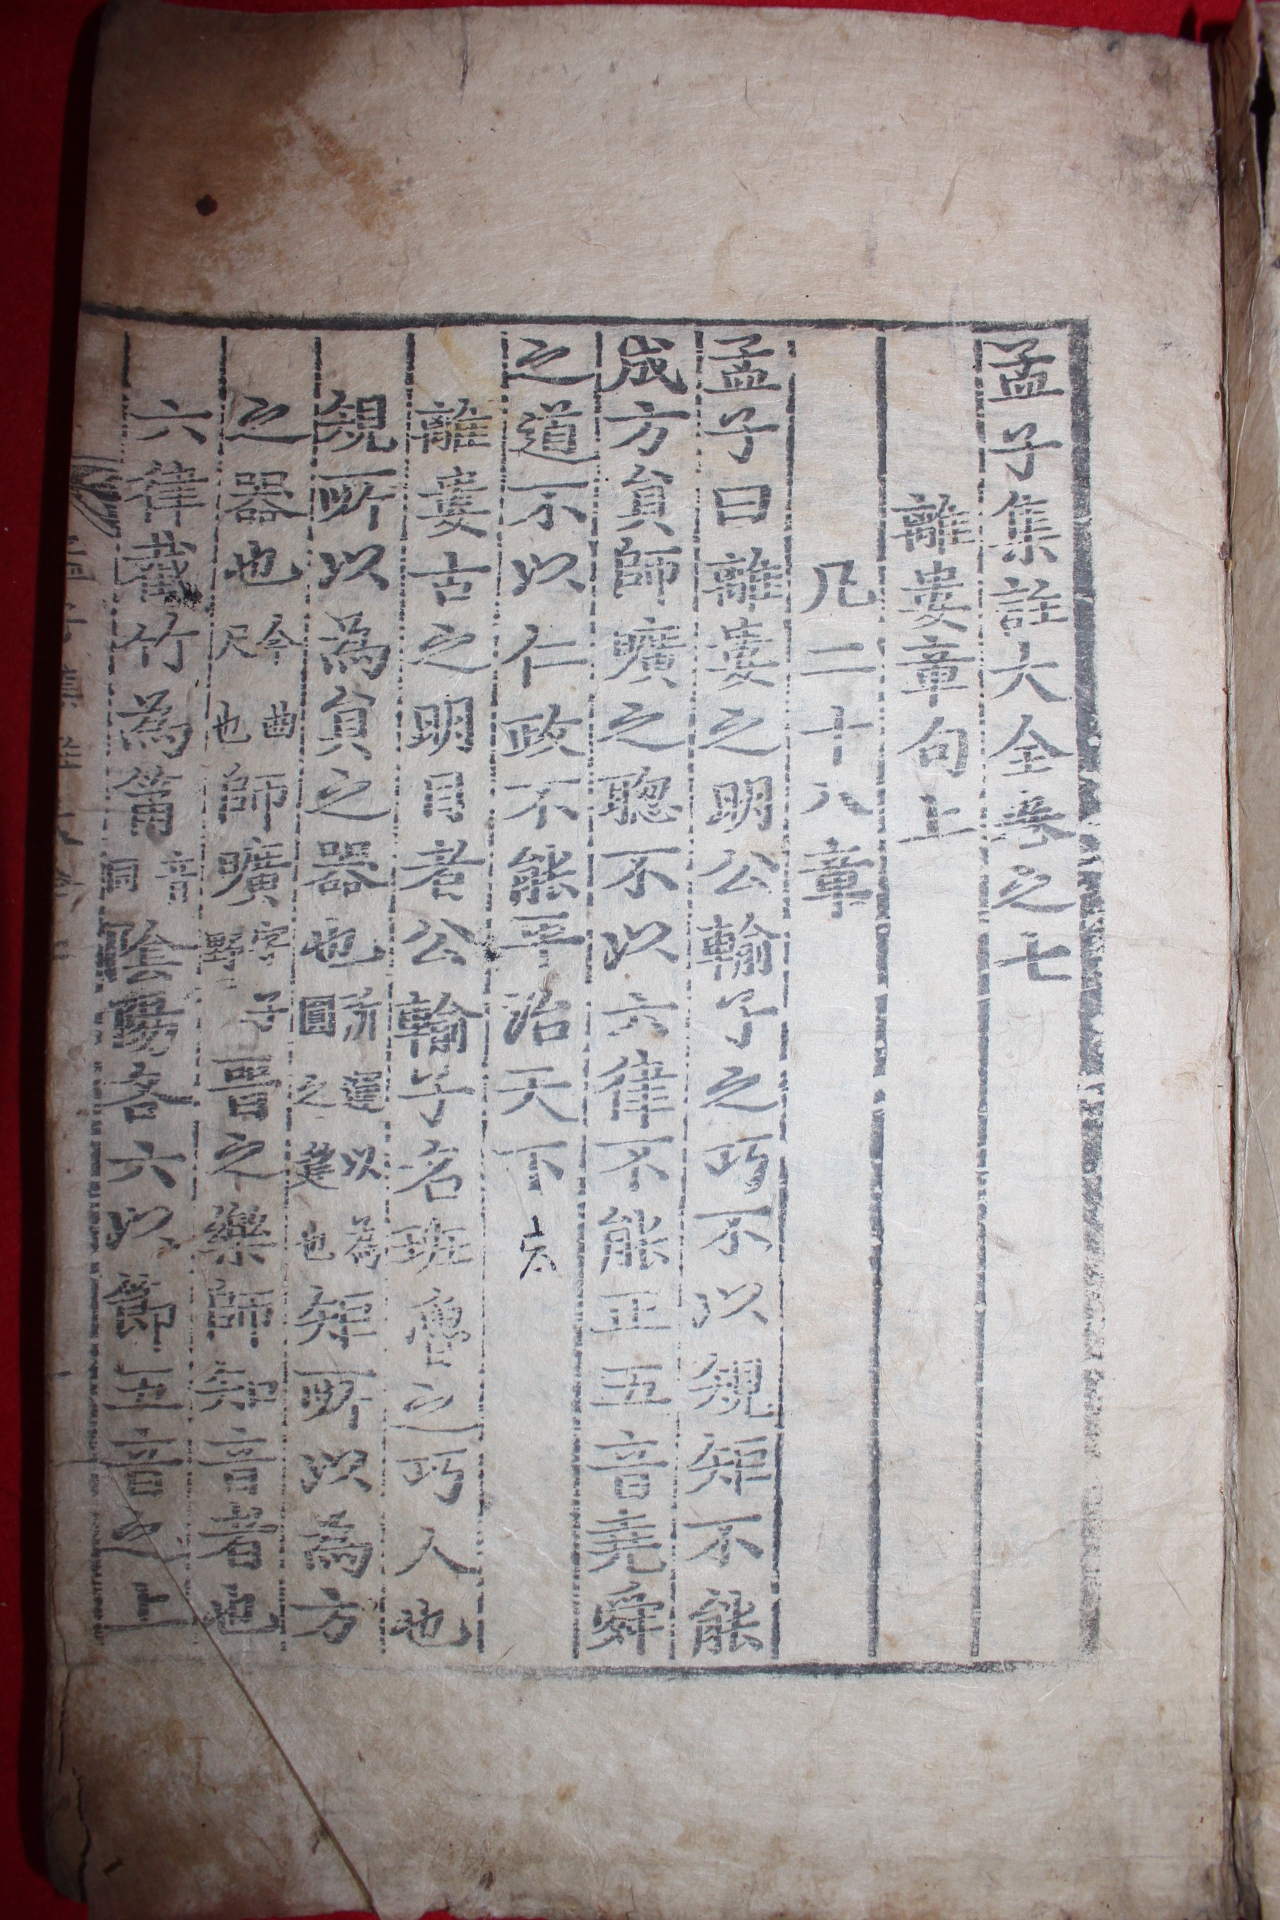 孟子集註大全卷之七
離婁章句上
凡二十八章
孟子曰離婁之明公輸子之巧不以規矩不能
成方員師曠之聰不以六律不能正五音堯舜
之道不以仁政不能平治天下
離婁古之明目者公輸子名班魯之巧人也
規所以為員之器也所運以為圓之筆也矩所以為方
之器也今曲尺也師曠字子野晉之樂師知音者也
六律截竹為筩音同陰陽各六以節五音之上